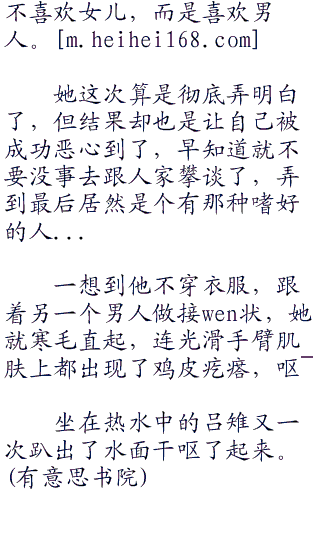 不喜欢女儿，而是喜欢男
人。[m.heihei168.com]
她这次算是彻底弄明白
了，但结果却也是让自己被
成功恶心到了，早知道就不
要没事去跟人家攀谈了，弄
到最后居然是个有那种嗜好
的人...
一想到他不穿衣服，跟
着另一个男人做接wen状，她
就寒毛直起，连光滑手臂肌
肤上都出现了鸡皮疙瘩，呕
坐在热水中的吕雉又一
次趴出了水面干呕了起来。
(有意思书院)